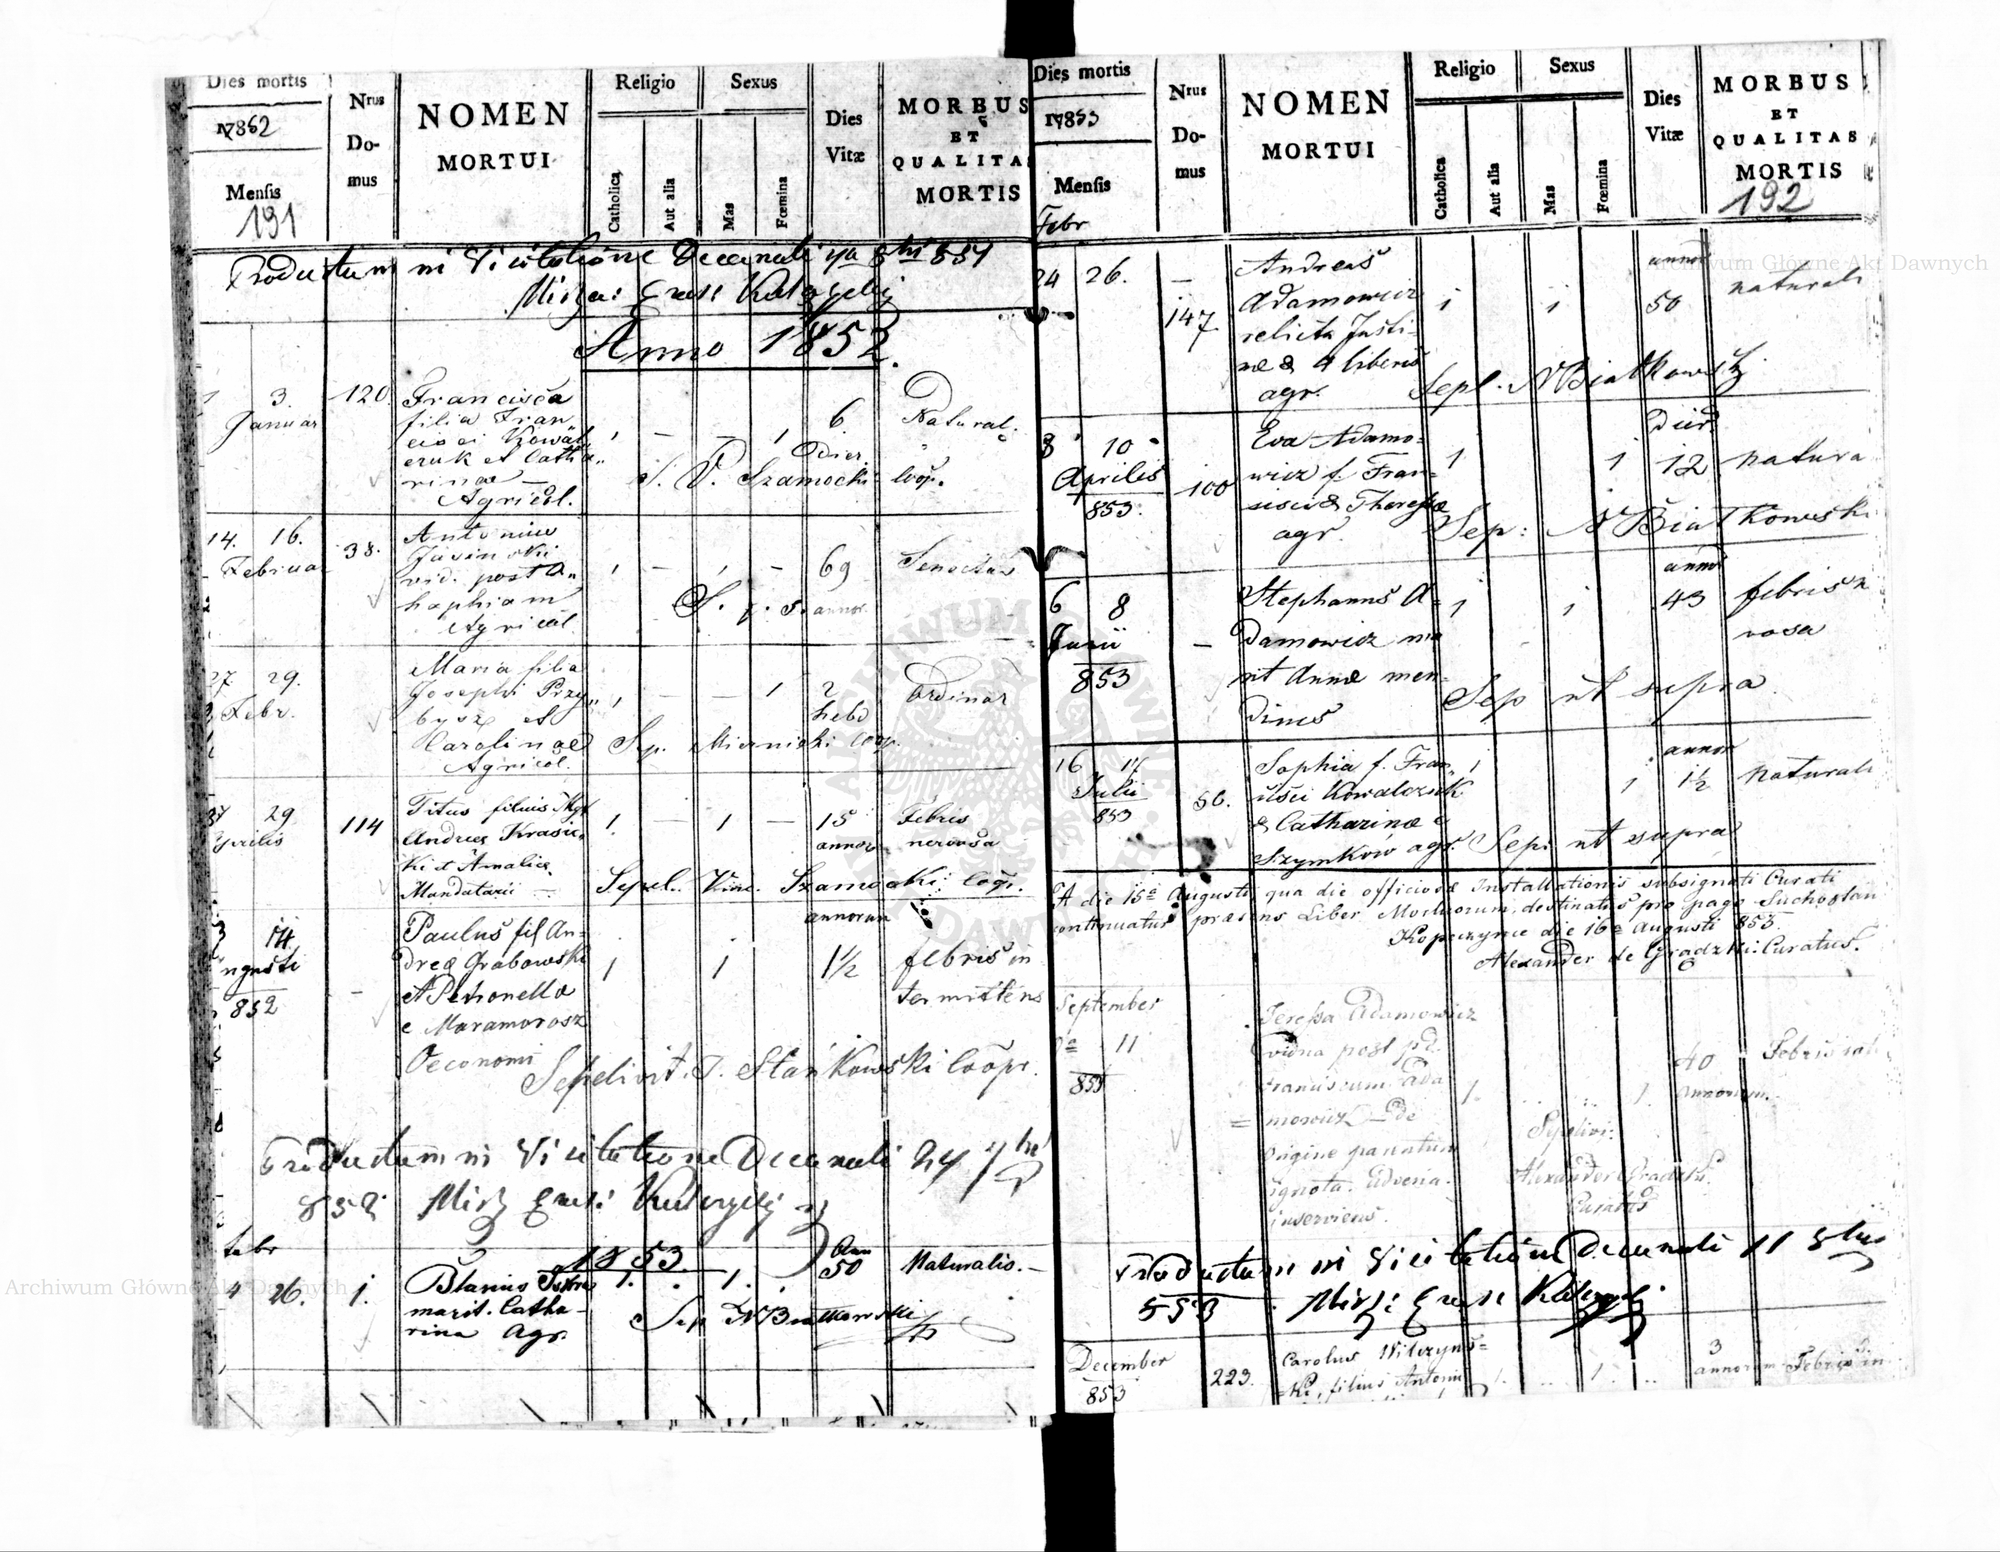 Dies mortis
17862
Mensis
191
Nrus
Do-
mus
NOMEN
MORTUI
Religio
Catholica
Aut alia
Sexus
Mas
Fœmina
Dies
Vitæ
MORBUS
ET
QUALITA
MORTIS
Productum in Visitatione Decanali 851
Anno 1852.
3.
Januar
120
Francisca
filia Fran
cisci Kowal
czuk et Catha
rinae
Agricol.
1 — — 1
6
Dier.
Natural.
S. V. Szamocki coop.
14. 16.
Februar
38.
Antonius
Jasinski
vid. post A
haphiam
Agricol
1 — 1 —
69
annor.
Senectus
27 29.
Febr.
Maria filia
Josephi Przy
bysz et
Karolinae
Agricol.
1 — — 1
2
hebd
Ordinar
Sep. Miernicki coop.
29
prilis
114
Titus filius Mgf
Andreæ Krasic
ki et Amaliæ
Mandatarii —
1. — 1 —
15
annor
Febris
nervosa
Sepel. Vinc. Szamocki coop.
14
ugusti
852
Paulus fil An-
dreæ Grabowski
et Petronella
e Maramorosz
Oeconomi
1 1
annorum
1½
febris in
termittens
Sepelivit. J. Stankowski coopr.
Productum in Visitatione Decanali 24 7bri
852
1853
febr
4 26.
1.
Blasius
marit. Catha-
rina agr.
1. 1.
Ann
50
Naturalis. —
Sep N Białkowski
Dies mortis
17853
Mensis
Febr
Nrus
Do-
mus
NOMEN
MORTUI
Religio
Catholica
Aut alia
Sexus
Mas
Fœmina
Dies
Vitæ
MORBUS
ET
QUALITAS
MORTIS
192
24 26.
147
Andreas
Adamowicz
relicta Justi-
næ & 4 liberis
agr.
1 1
annor
50
naturalis
Sepl. N Białkowski
8 10
Aprilis
853.
100
Eva Adamo-
wicz f. Fran-
cisci & Theresæ
agr.
1 1
Dier
12
natura
Sep: N Białkowski
6 8
Junii
853
—
Stephanus A-
damowicz ma
rit Annæ men-
dicus
1 1
annor
43
febris n
vosa
Sep ut supra
16
Julii
853
56.
Sophia f. Fran
cisci Kowalczuk
& Catharinæ e
Szymków agr.
1 1
annor
1½
naturalis
Sep. ut supra
A die 15a Augusti qua die officiosæ Installationis subsignati Curati
continuatus præsens Liber Mortuorum, destinatus pro pago Suchostaw
Kopeczynce die 16a Augusti 853.
Alexander de Gradzki Curatus.
September
11
853
Teressa Adamowicz
vidua post pd.
Franciscum Ada
mowicz — de
origine panatum
ignota. advena.
inserviens.
1. 1.
40
annorum.
Sepelivi:
Alexander Gradzki
Curatus
Productum in Visitatione Decanali 11
853
December
853
223.
Carolus Wilczyns-
ki, filius Antonii
1. 1.
3
annorum
Febris in
Archiwum Główne Akt Dawnych
Archiwum Główne Akt Dawnych
ARCHIWUM GŁÓWNE
AKT DAWNYCH